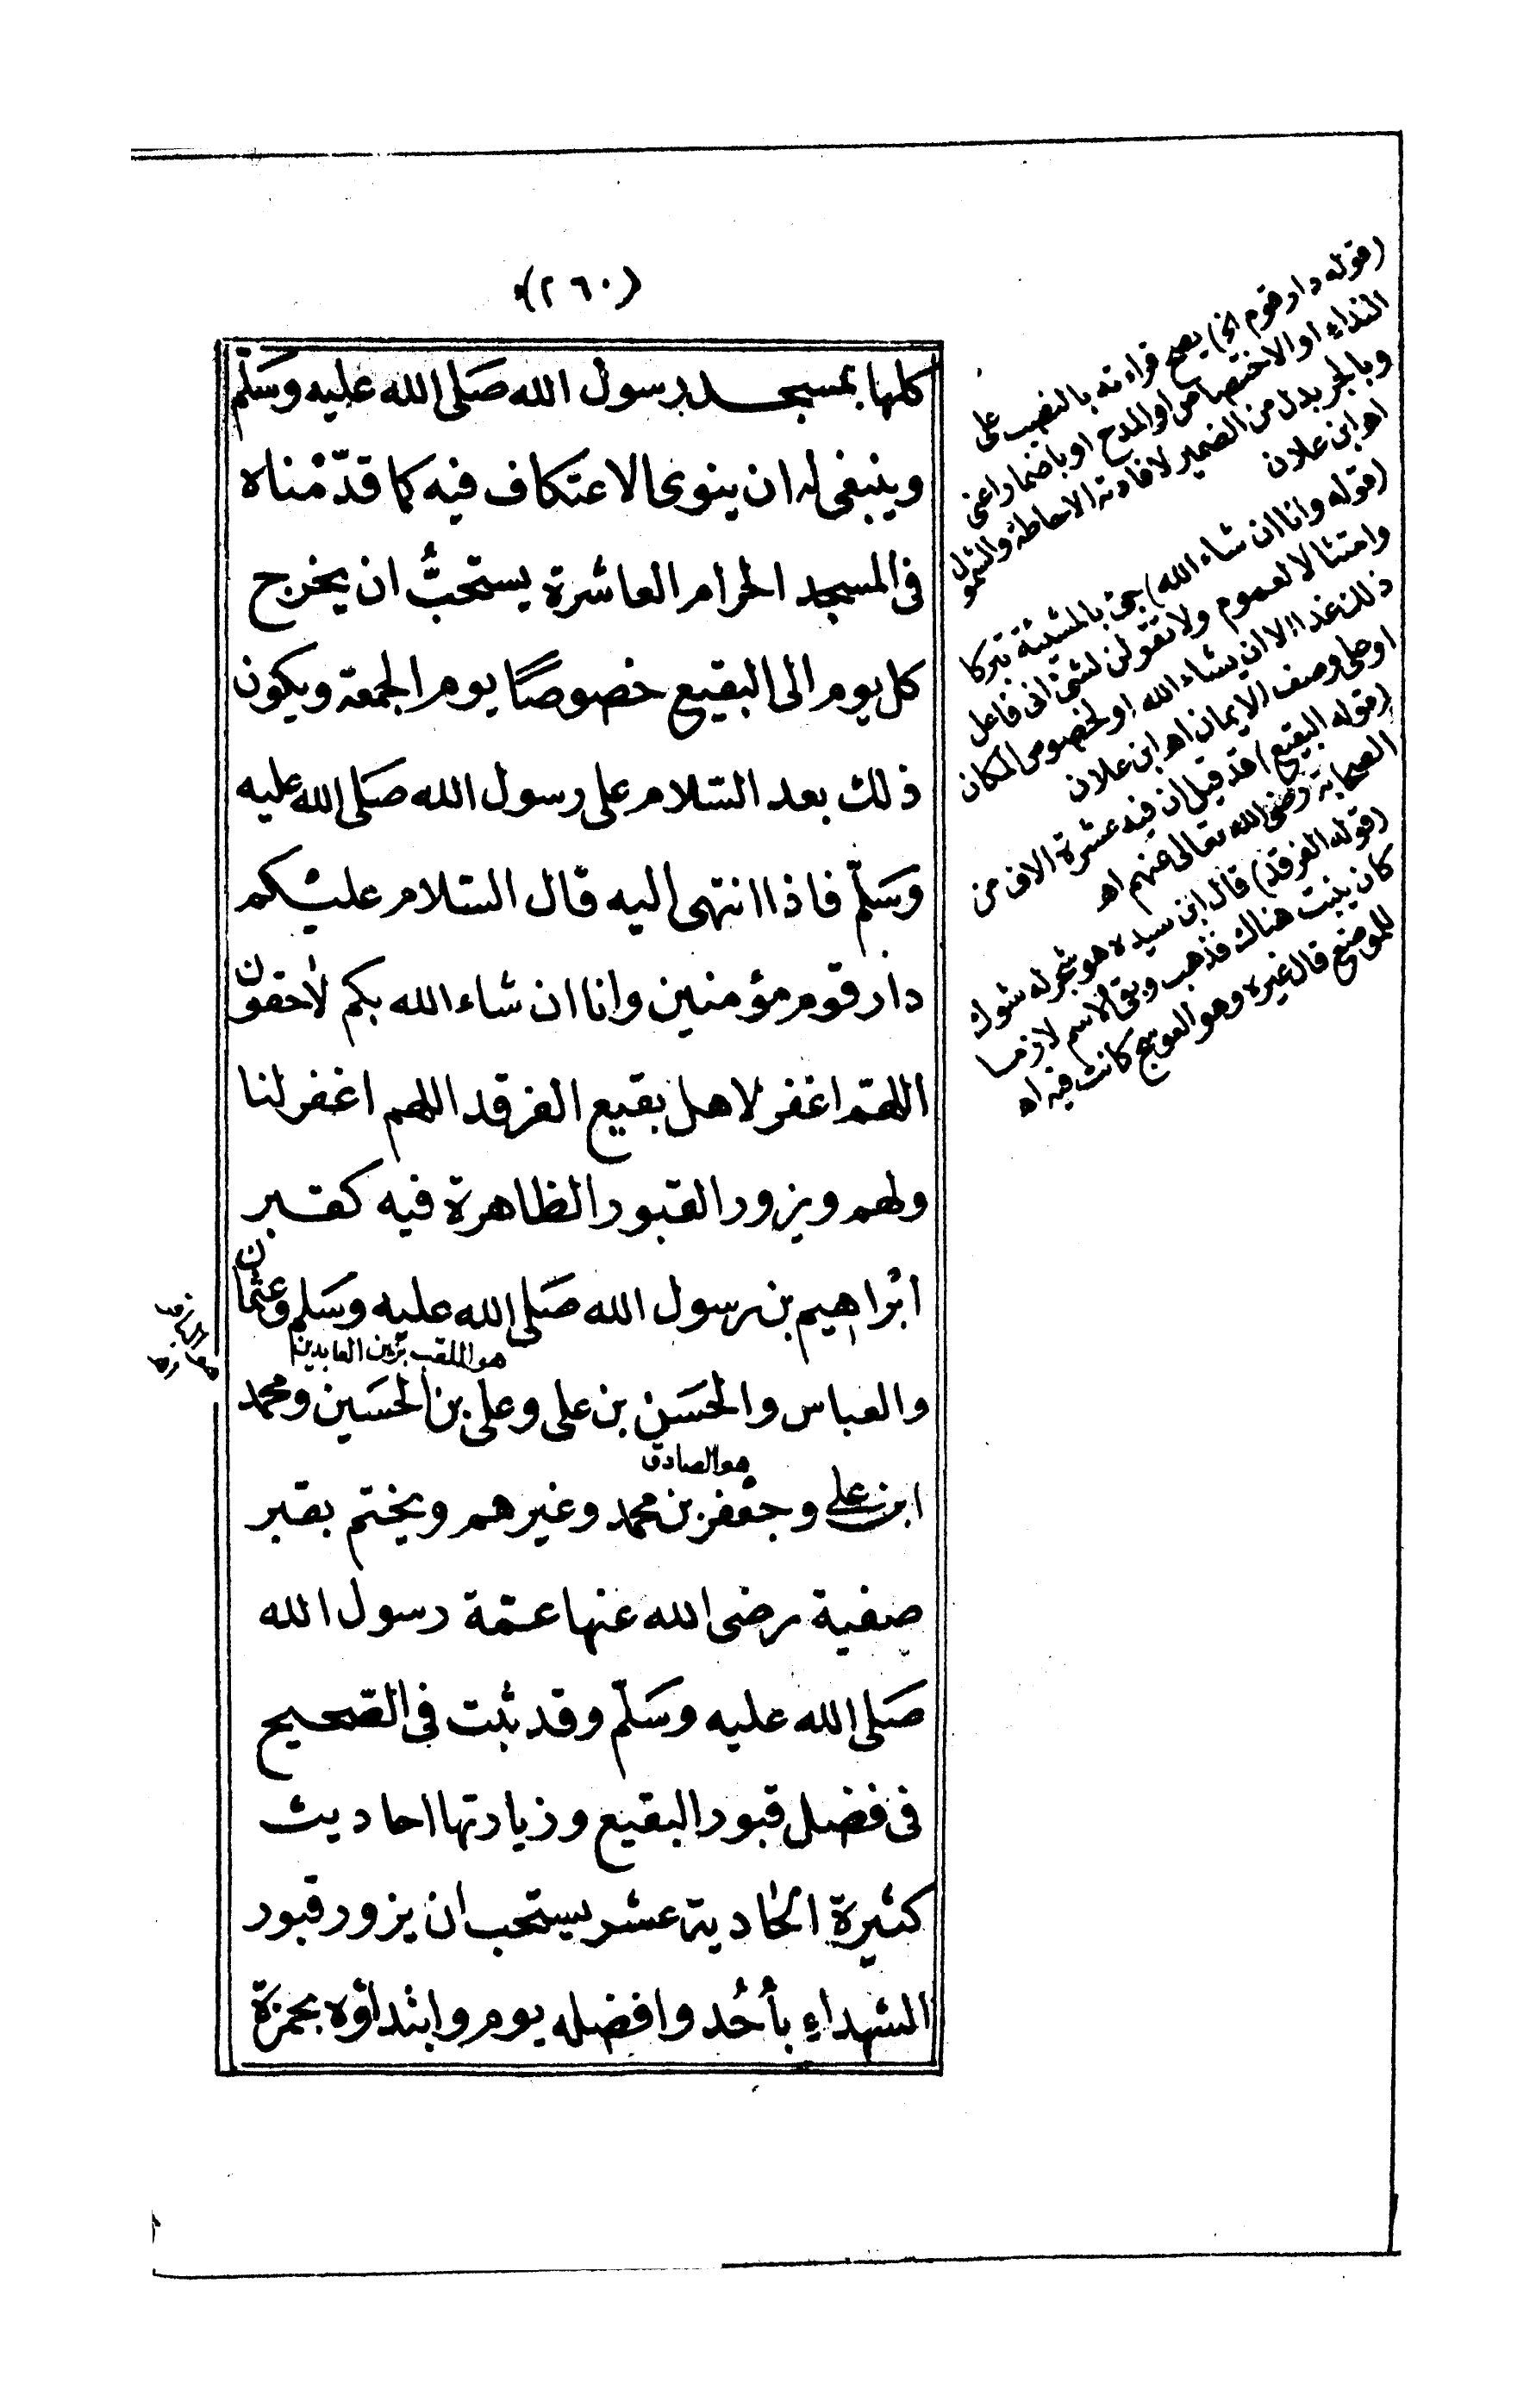 (٢٦٠)
كلها بمسجد رسول الله صَلى الله عليه وسَلّم
وينبغى له ان ينوى الاعتكاف فيه كما قدّمْناه
فى المسجد الحرام العاشرة يستحبُّ ان يخرج
كل يوم الى البقيع خصوصًا يوم الجمعة ويكون
ذلك بعد السّلام على رسول الله صَلى الله عليه
وَسَلّم فاذا انتهى اليه قال السّلام عليكم
دار قوم مؤمنين وانا ان شاء الله بكم لاحقون
اللهمّ اغفر لاهل بقيع الغرقد اللهم اغفر لنا
ولهم ويزور القبور الظاهرة فيه كقبر
ابْراهيم بن رسول الله صَلى الله عليه وسَلم وعثمان
هو الملقب بزين العابدين
والعباس والحَسَن بن على وعلى بن الحسَين ومحمد
هو الصادق
ابن على وجعفر بن محمد وغيرهم ويختم بقبر
صفية رضى الله عنها عمّة رسول الله
صَلى الله عليه وسَلّم وقد ثبت فى الصّحيح
فى فضل قبور البقيع وزيارتها احاديث
كثيرة الحادية عشر يستحب ان يزور قبور
الشهداء بأُحُد وافضله يوم وابتداؤه بحمزة
(قوله دار قوم الخ) يصح قراءته بالنصب على
النداء او الاختصاص او المدح او باضمار اعنى
وبالجر بدل من الضمير لافادته الاحاطة والشمول
اه ابن علان
(قوله وانا ان شاء الله) بالمشيئة تبركا
وامتثالا لعموم ولا تقولن لشئ انى فاعل
ذلك غدا الا ان يشاء الله او لخصوص المكان
او على وصف الايمان اه ابن علان
(قوله البقيع) قد قيل ان فيه عشرة الاف من
الصحابة رضى الله تعالى عنهم اه
(قوله الغرقد) قال ابن سيده هو شجر له شوك
كان ينبت هناك فذهب وبقى الاسم لازما
للموضع قال غيره وهو العوسج كانت فيه اه